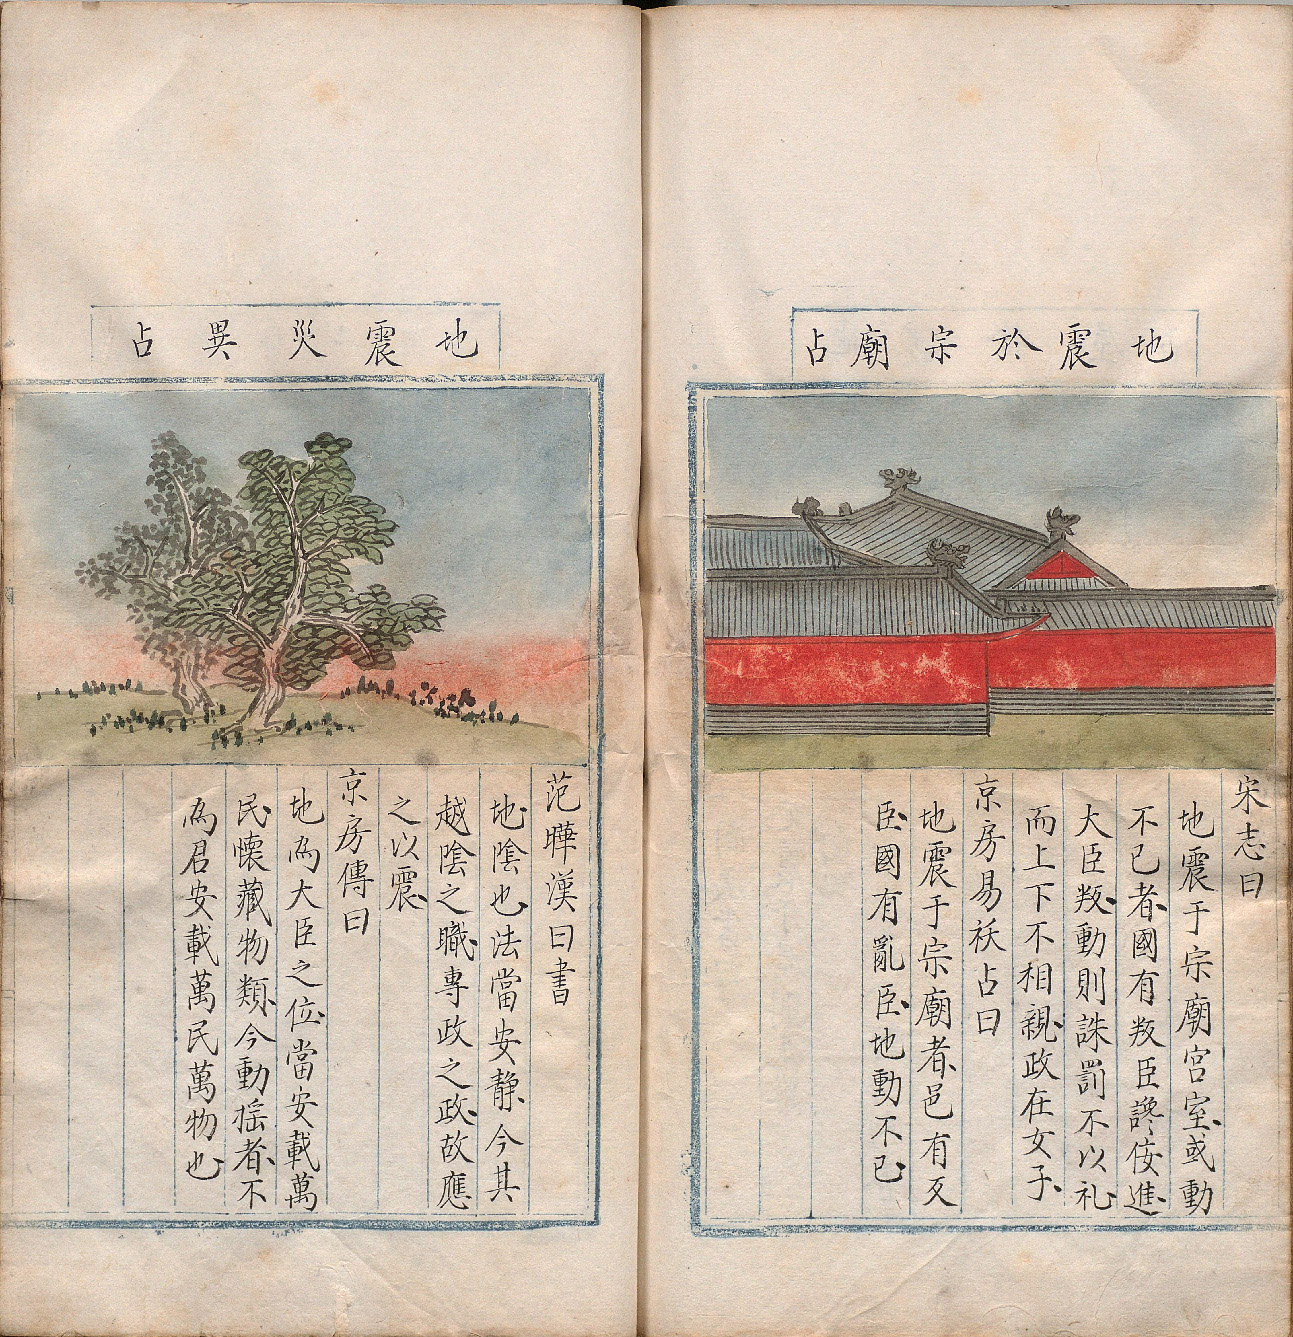 地震於宗廟占
宋志曰
地震于宗廟宮室或動
不已者國有叛臣讒佞進
大臣叛動則誅罰不以礼
而上下不相親政在女子
京房易祅占曰
地震于宗廟者邑有反
臣國有亂臣地動不已
地震災異占
范曄漢曰書
地陰也法當安静今其
越陰之職專政之政故應
之以震
京房傳曰
地為大臣之位當安載萬
民懷藏物類今動揺者不
為君安載萬民萬物也